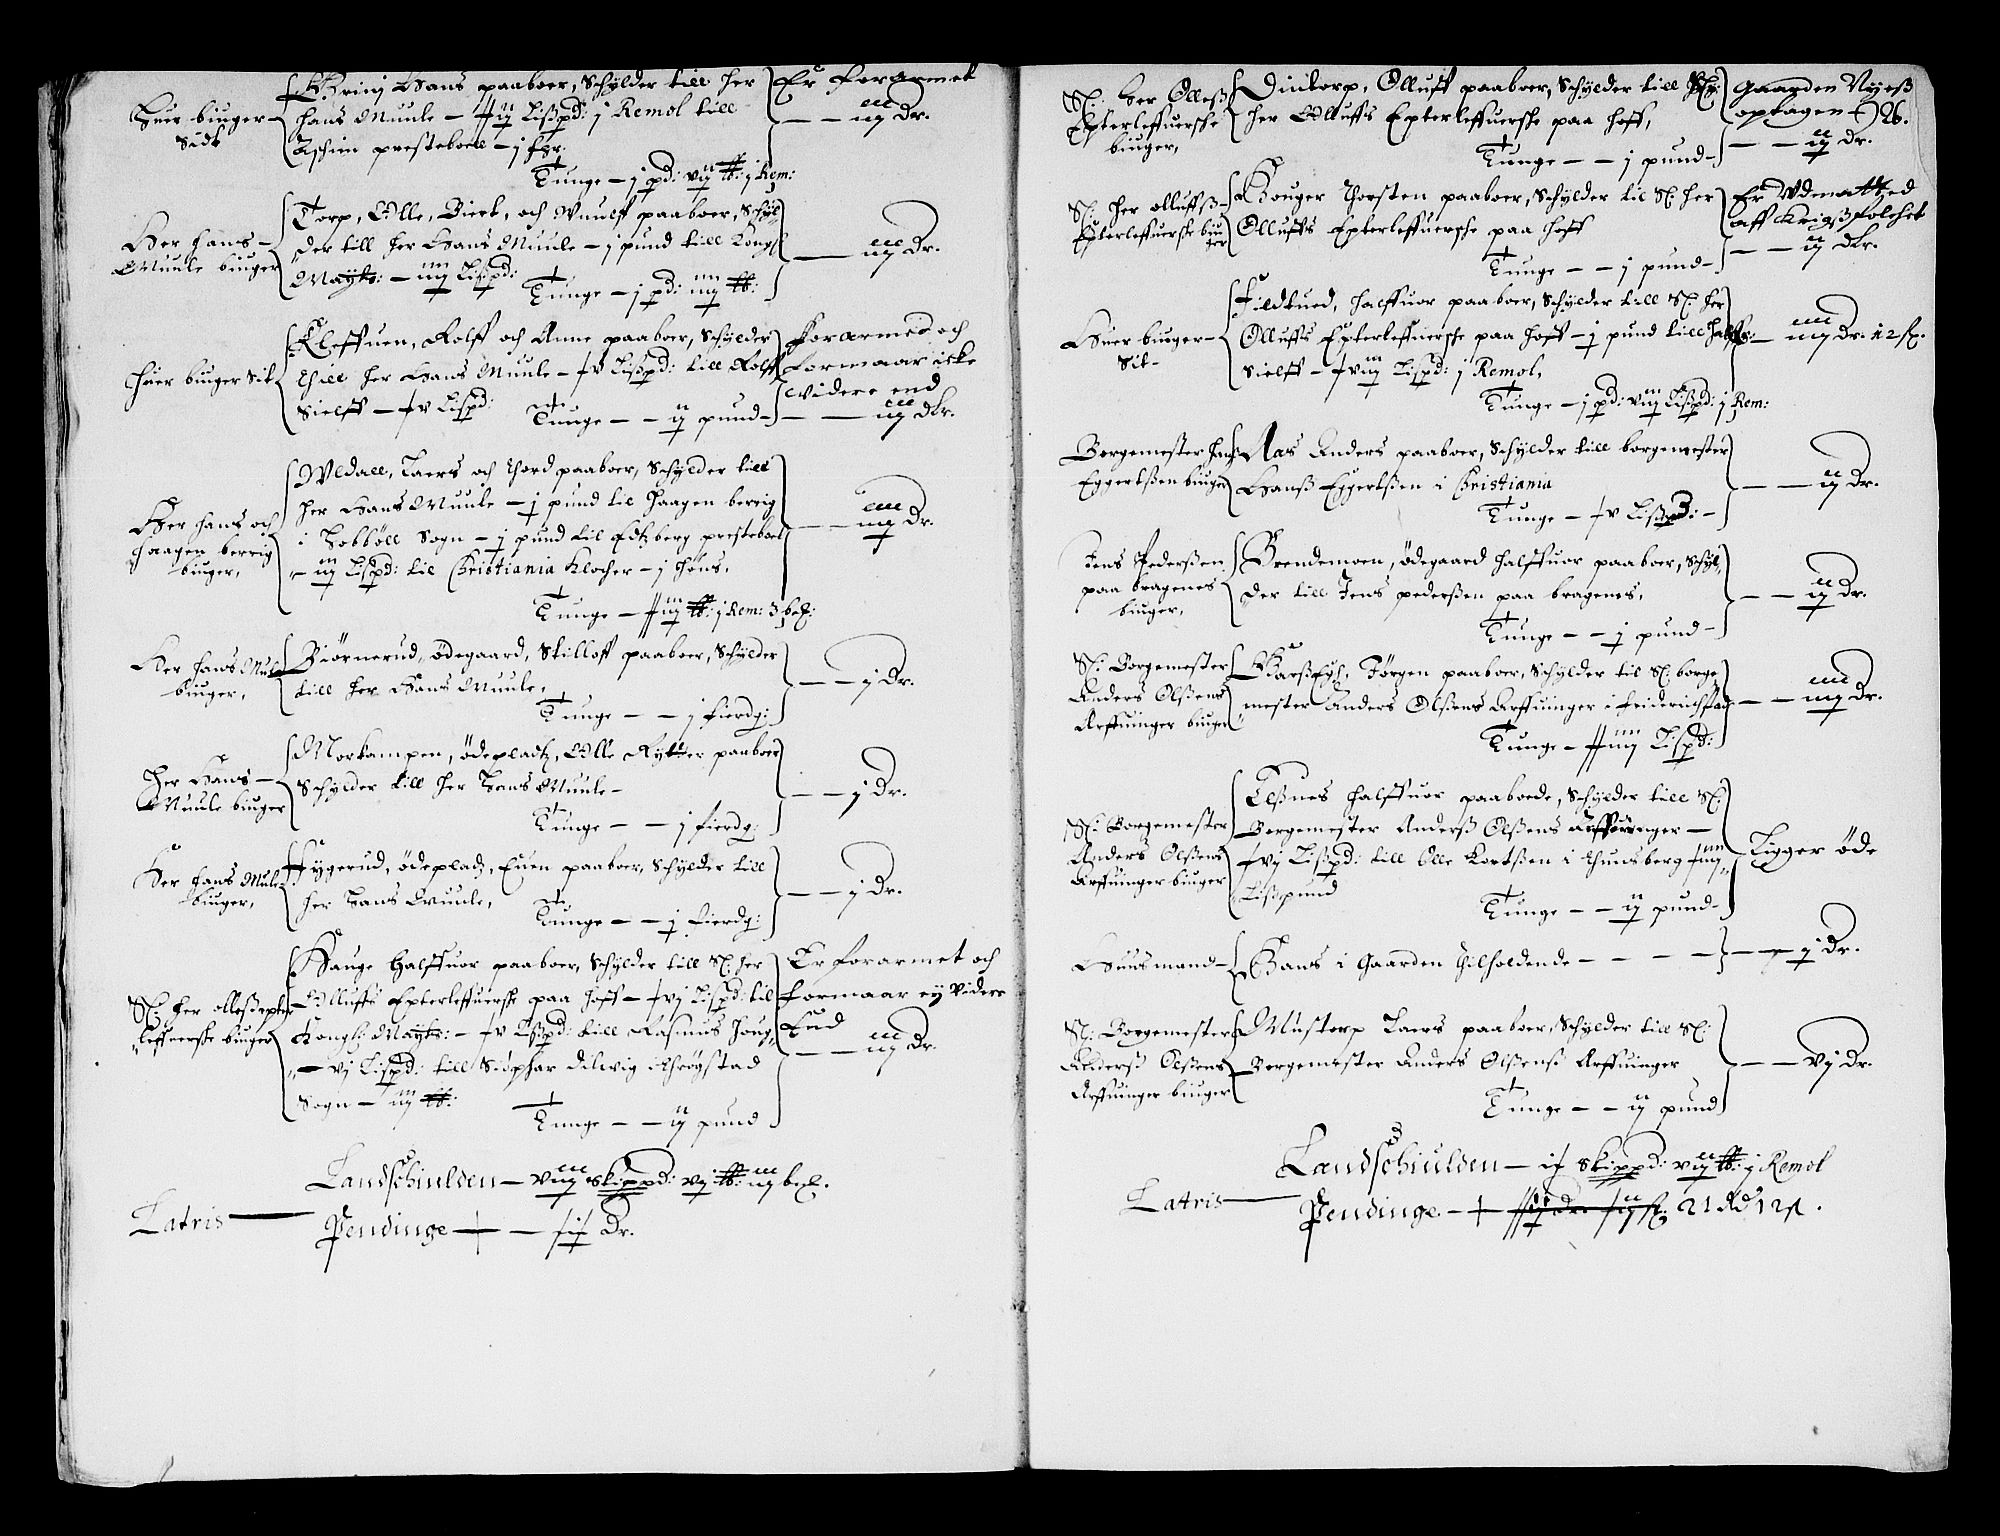 Huer biuger
Sidt
Gring Hans paaboer, Schylder till her
hans Muule – ij Lißpd: j Remol till
presteboell – j
Tunge – j pd: vij tt: j Rem:
Er forarmet
– – iij Dr.
Her hans
Muule biuger
Torp, Olle, Biert, och Wuulff paaboer, Schyl
der till her Hans Muule – j pund till Kongl:
Maytt: – iiij Lißpd:
Tunge – j pd: iiij tt:
– iij Dr.
Huer biuger Sit
Kleffuen, Rolff och Anne paaboer, Schylder
thill her Hans Muule – v Lißpd: till Rolff
Sielff – v Lißpd:
Tunge – – ij pund –
Forarmid och
formaar icke
Widere end
– – iij dlr.
Her Hans och
Haagen berrig
biuger,
Wldall, Laers och Thord paaboer, Schylder till
her Hans Muule – j pund til Haagen berrig
i Hobböll Sogn – j pund til Edtzberg presteboel
– iij Lißpd: til Christiania Klocher – j
Tunge – iij tt: j Rem: 3 bel:
– – iiij Dr.
Her Hans Mule
biuger,
Biörnerud, ödegaard, Skilloff paaboer, Schylder
till her Hans Muule,
Tunge – – j fierdg:
– – j Dr.
Her Hans
Muule biuger
Morkampen, ödepladtz, Olle Rytter paaboer
Schylder till her Hans Muule –
Tunge – – j fierdg:
– – j Dr.
Her Hans Mule
biuger,
Hygerud, ödepladz, Euen paaboer, Schylder till
her Hans Muule,
Tunge – – j fierdg:
– – j Dr.
Sl: her olleß epter
leffuerske biuger
Hauge Halffuor paaboer, Schylder till Sl: her
Olluffs Epterleffuerske paa hoff – vj Lißpd: til
Kongl: Maytt: – v Lißpd: till Rasmus Houg
– vj Lißpd: till
Sogn – iij tt:
Tunge – – ij pund
Er forarmet och
formaar ej Videre
End
– – iij Dr.
Landschiulden – viij skippd: vj tt: iij bel.
Latris
Pendinge – –  Dr.
Sl: her Olleß
Epterleffuerske
biuger,
Dintorp, Olluff paaboer, Schylder till Sl:
her Olluffs Epterleffuerske paa hoff,
Tunge – – j pund –
Gaarden Nyeß
optagen
– – ij Dr.
Sl: her olluffß
Epterleffuerske biu
ger
Houger Thorsten paaboer, Schylder til Sl: her
Olluffs Epterleffuerske paa hoff
Tunge – – j pund –
Er Wdmattted
aff Krigß folchet
– – ij dlr.
Huer biuger
Sit –
Fieldtued, Halffuor paaboer, Schylder till Sl: her
Olluffs Epterleffuerske paa hoff – j pund till Halffr:
Sielff – viij Lißpd: j Remol,
Tunge – j pd: viij Lißpd: j Rem:
– iiij Dr: 12 sl.
Borgemester Hanß
Eggertßen biuger
Aas Anders paaboer, Schylder till borgemester
Hanß Eggertßen i Christiania
Tunge – v Lißpd: –
– – ij Dr.
Jens Pederßen
paa bragenes
biuger,
Brendemoen, ödegaard Halffuor paaboer, Schyl
der till Jens pederßen paa bragenes,
Tunge – – j pund –
– – ij Dr.
Sl: Borgemester
Anders Olßens
Arffuinger biuger
Jörgen paaboer, Schylder til Sl: borge
mester Anders Olßens Arffuinger i friderichstad
Tunge – iiij Lißpd:
– – iiij Dr.
Sl: Borgemester
Anders Olßens
Arffuinger biuger
Elßnes Halffuor paaboede, Schylder till Sl:
Borgemester Anderß Olßens Arffuinger –
vj Lißpd: till Olle Kortßen i Thunsberg iiij
Lißpund
Tunge – – ij pund –
Ligger öde
Huusmand –
Hans i Gaarden tilholdende – – – –
– – j Dr.
Sl: Borgemester
Anderß Olßens
Arffuinger biuger
Mustorp Laers paaboer, Schylder till Sl:
Borgemester Anders Olßens Arffuinger
Tunge – – ij pund
– – vj Dr.
Landschiulden – skippd: viij tt: j Remol
Latris
Pendinge – 21 Rd 12 sl.